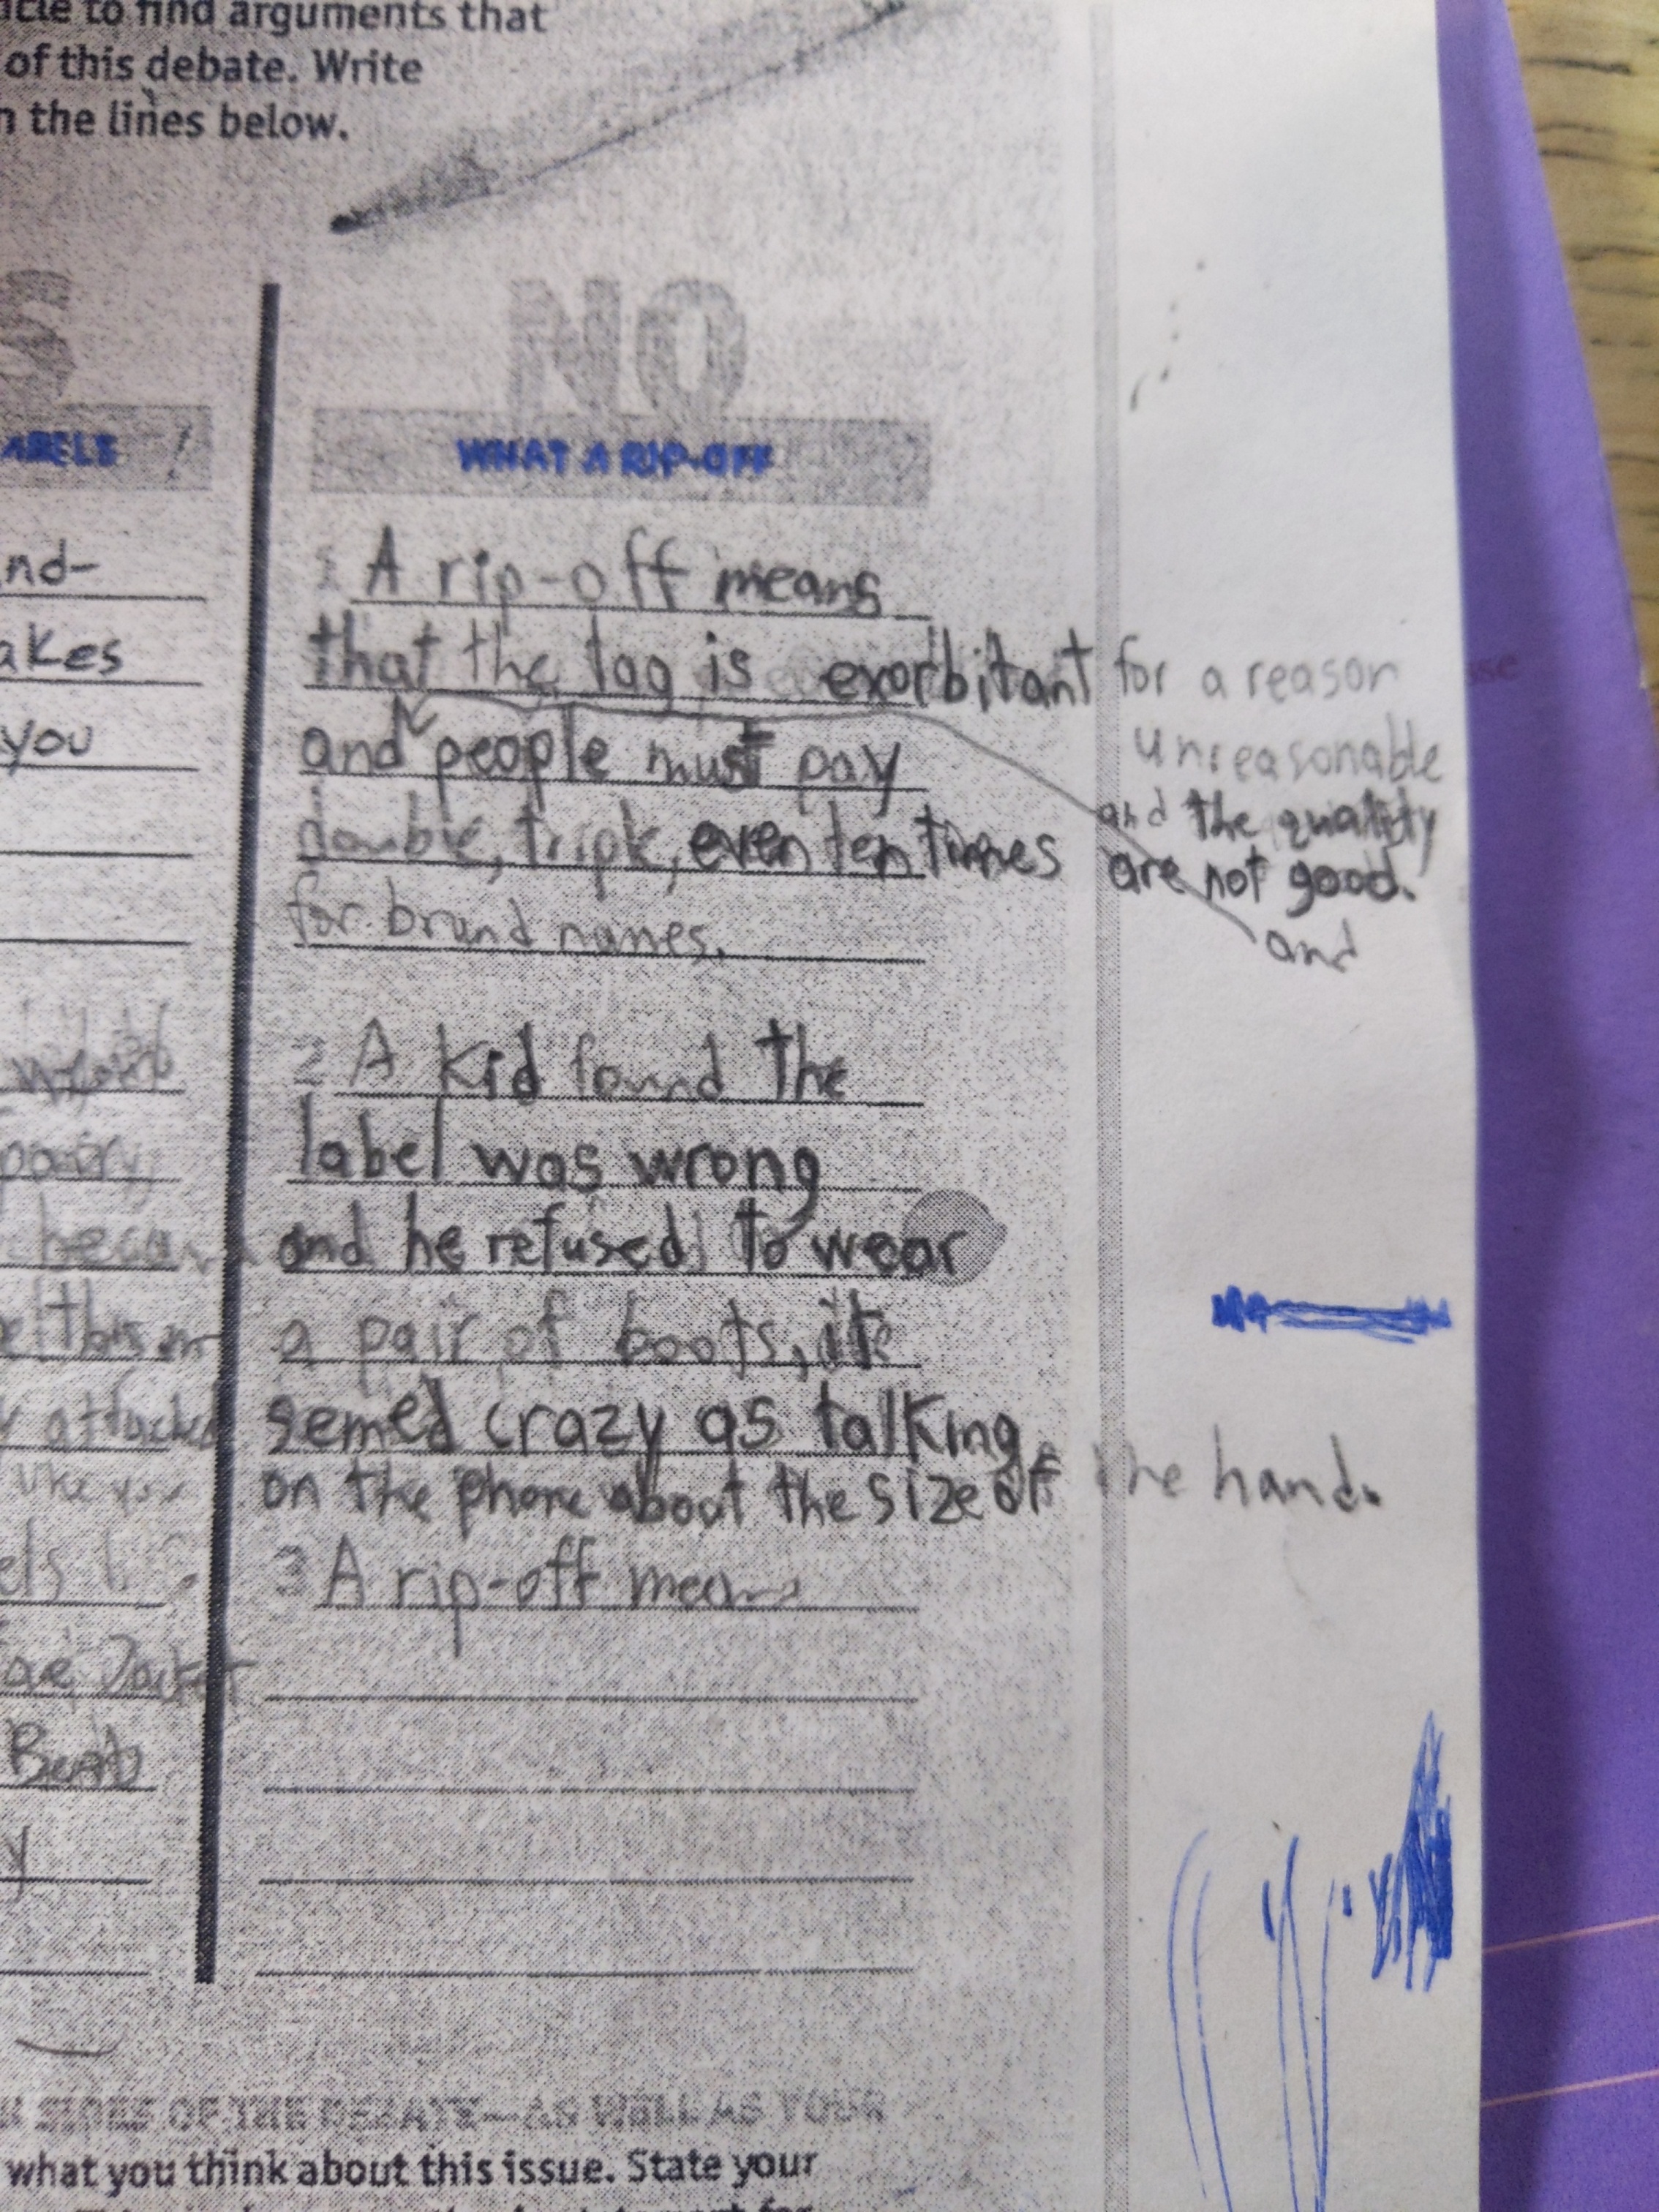 icle to find arguments that
of this debate. Write
n the lines below.
S
NO
ABELS !
WHAT A RIP-OFF
nd-
akes
you
1 A rip-off means
that the tag is exorbitant for a reason
unreasonable
and people must pay
and the quality
double, triple, even ten times
are not good.
for brand names.
and
2 A kid found the
label was wrong
and he refused to wear
a pair of boots, it
semed crazy as talking
on the phone about the size of the hand.
3 A rip-off means
attached
like you
els
Jacket
y
SIDES OF THE DEBATE—AS WELL AS YOUR
what you think about this issue. State your